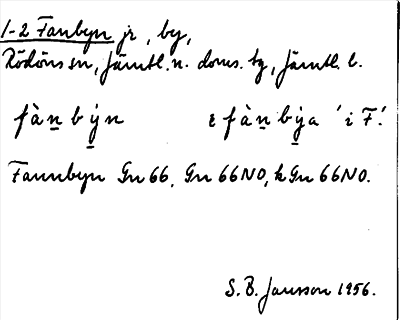 1-2 Fanbyn jr, by,
Rödöns sn, Jämtl. n. doms. tg, Jämtl. l.
fàn̠ bý̠n ɛ fàn̠ bý̠a 'i F.'
Fannbyn Gn 66, Gn 66NO, kGn 66NO.
S. B. Jansson 1956.